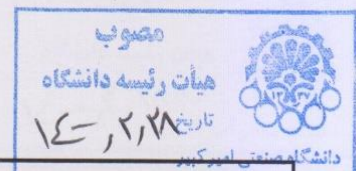 مصوب
هیأت رئیسه دانشگاه
تاریخ ۱۴۰۰,۲,۲۸
دانشگاه صنعتی امیرکبیر